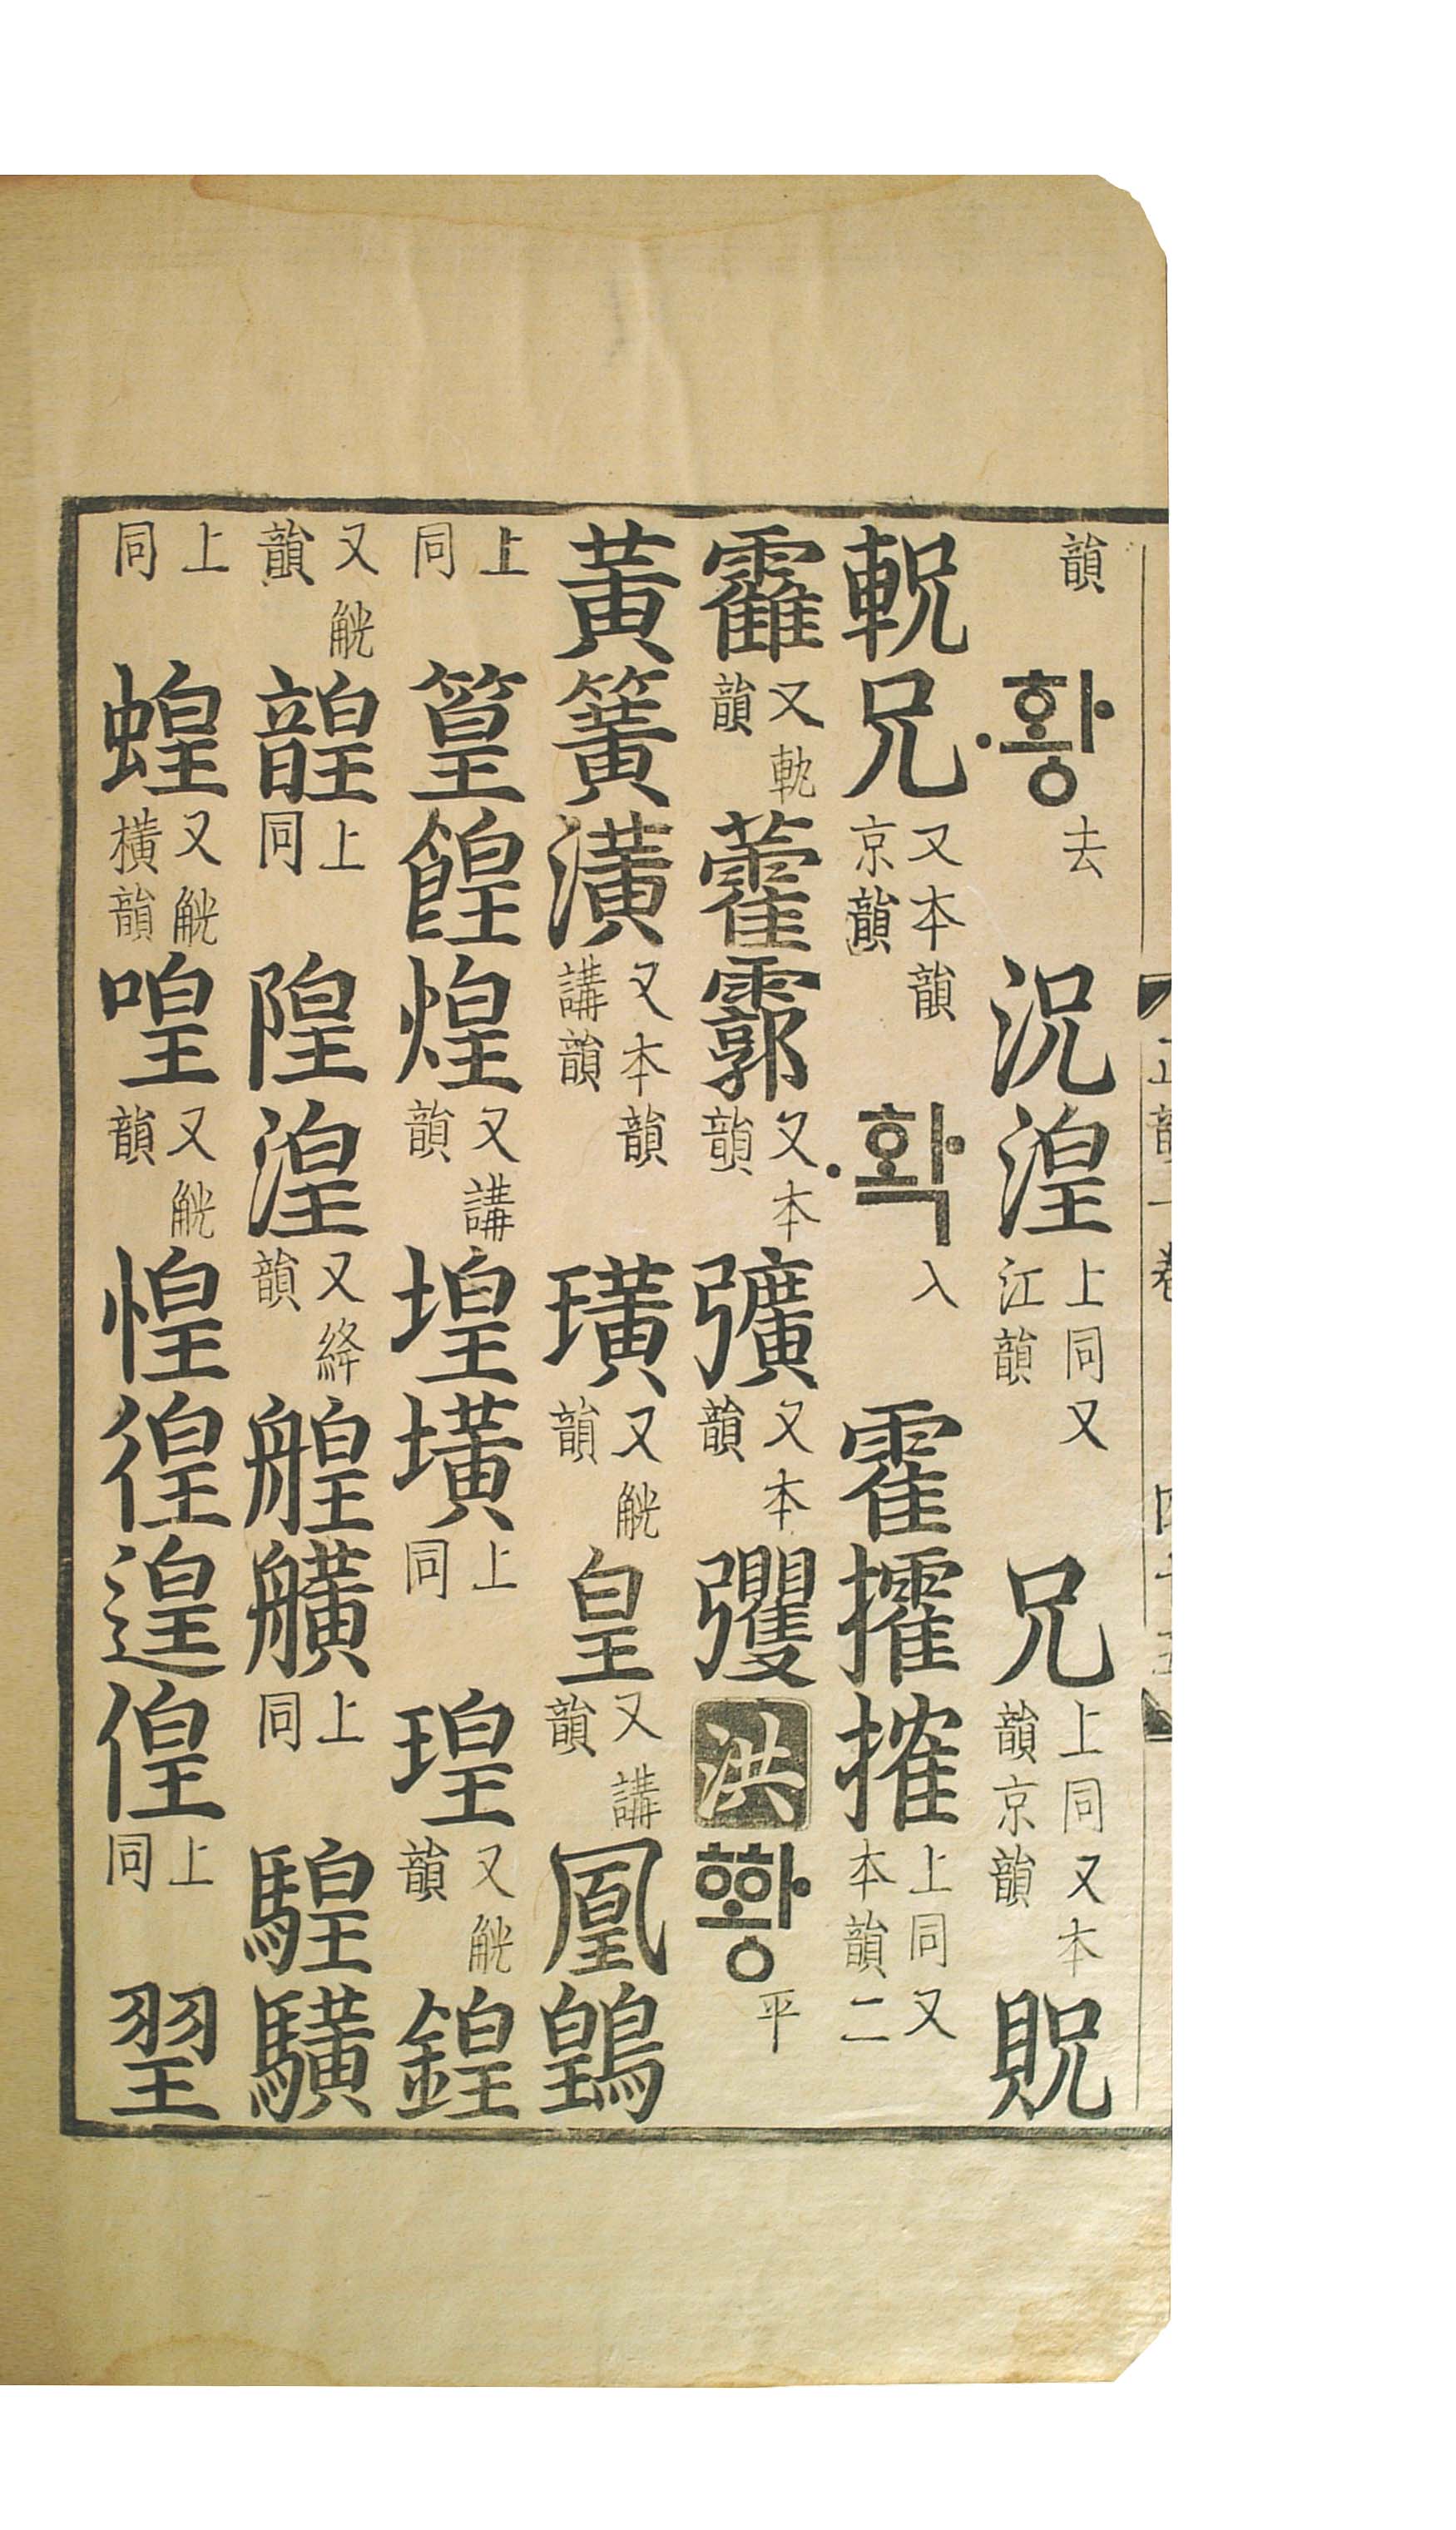 韻 ·황 去 況湟 上同又江韻 兄 上同又本韻京韻 貺
軦兄 又本韻京韻 ·확 入 霍攉搉 上同又本韻二
靃 又軏韻 藿霩 又本韻 彉 又本韻 彏 洪 ᅘᅪᇰ 平
黃簧潢 又本韻講韻 璜 又觥韻 皇 又講韻 凰䳨
上同 篁餭煌 又講韻 堭墴 上同 瑝 又觥韻 鍠
又觥韻 韹 上同 隍湟 又絳韻 艎䑟 上同 騜䮲
上同 蝗 又觥橫韻 喤 又觥韻 惶徨遑偟 上同 䍿